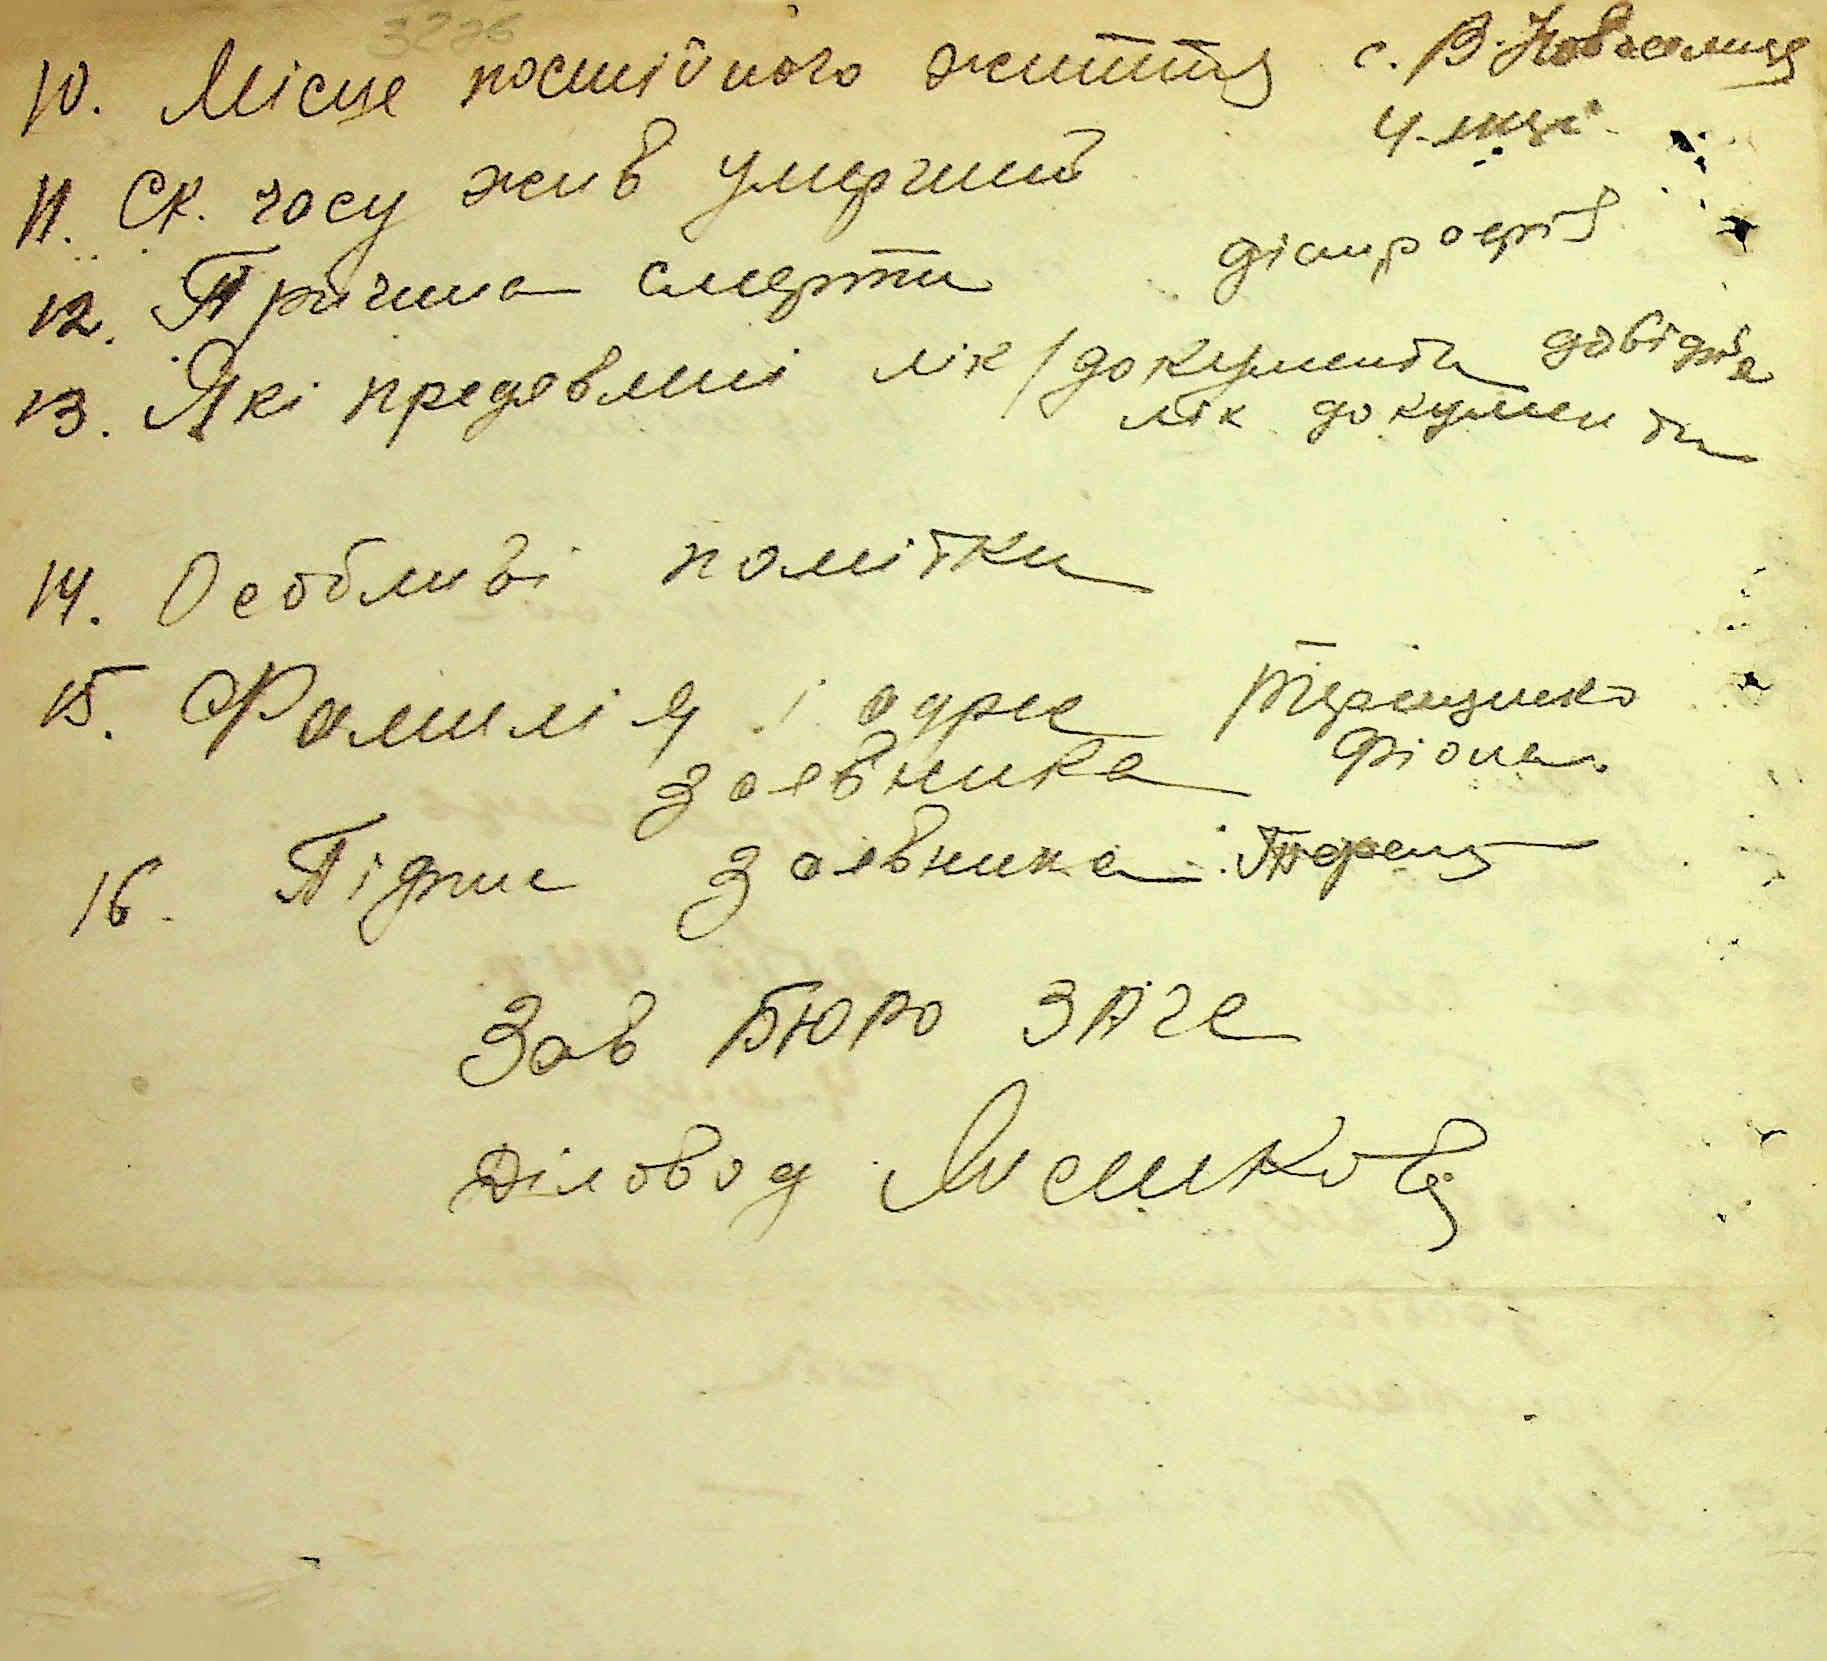 3226
10. Місце постійного життя с. В. Новоселиця
11. Ск. часу жив умерчий 4 міся
12. Причина смерти дістрофія
13. Які предявлені лік/документи довідка
лік документи
14. Особливі помітки
15. Фамилія і адрес Терещенко
заевника Фіона
16. Підпис заевника Терещ
Зав Бюро ЗАГС
Діловод